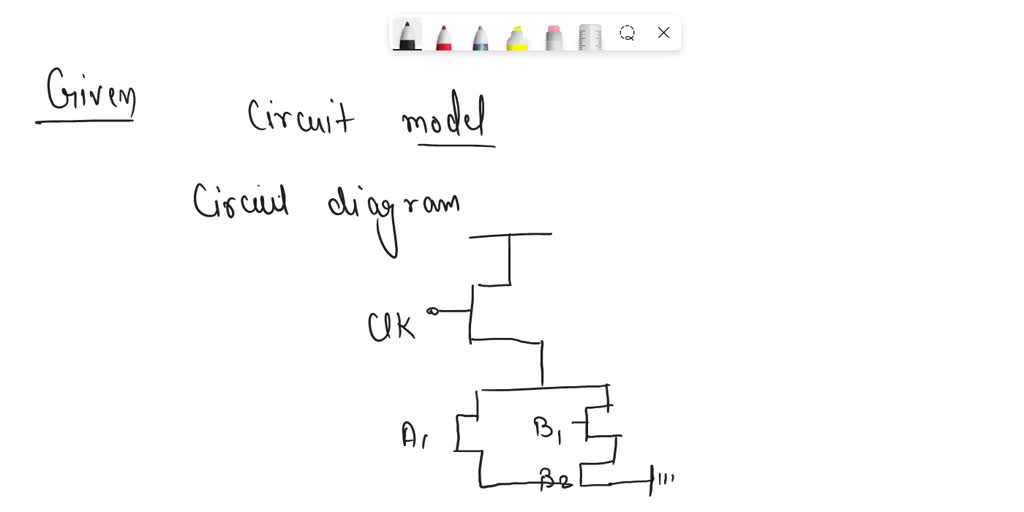 Given
Circuit model
Circuit diagram
Clk
A1
B1
B2